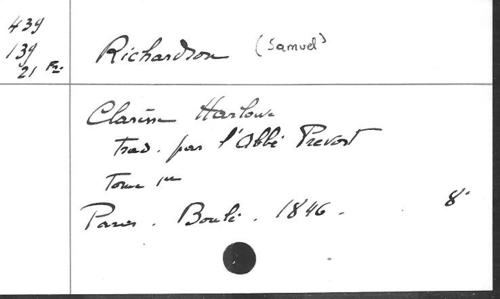 439
139
21 Fr.
Richardson (Samuel)
Clarisse Harlowe
trad. par l'Abbé Prevost
Tome 1er
Paris. Boulé. 1846. 8°